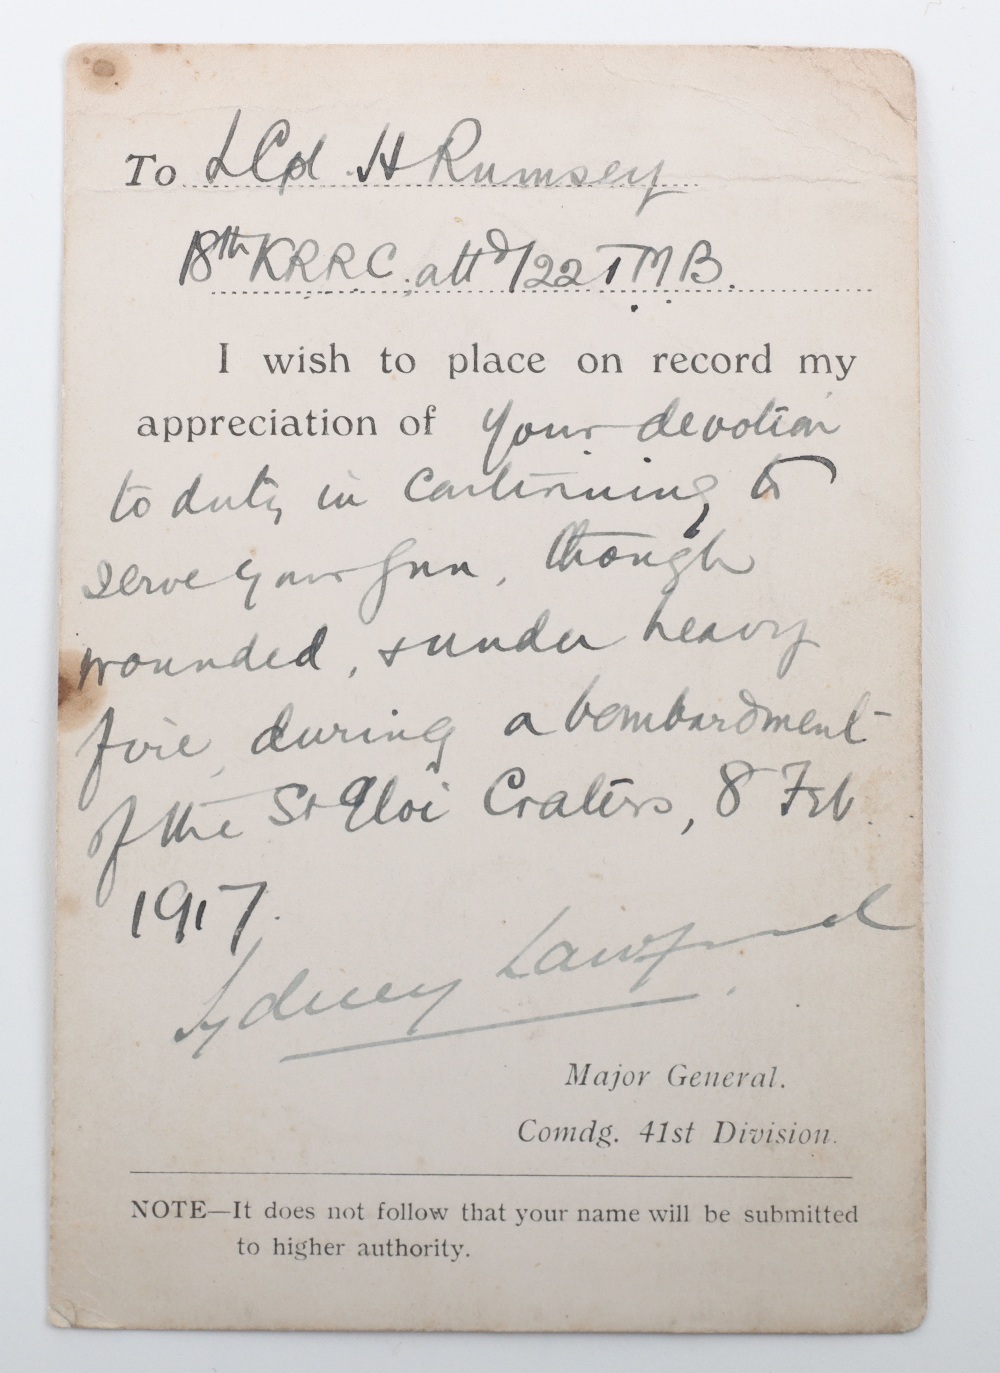 To LCpl H Rumsey
18th KRRC, attd 122 TMB.
I wish to place on record my
appreciation of your devotion
to duty in continuing to
serve your gun, though
wounded, & under heavy
fire, during a bombardment
of the St Eloi Craters, 8 Feb.
1917.
Sydney Lawford.
Major General.
Comdg. 41st Division.
NOTE—It does not follow that your name will be submitted
to higher authority.